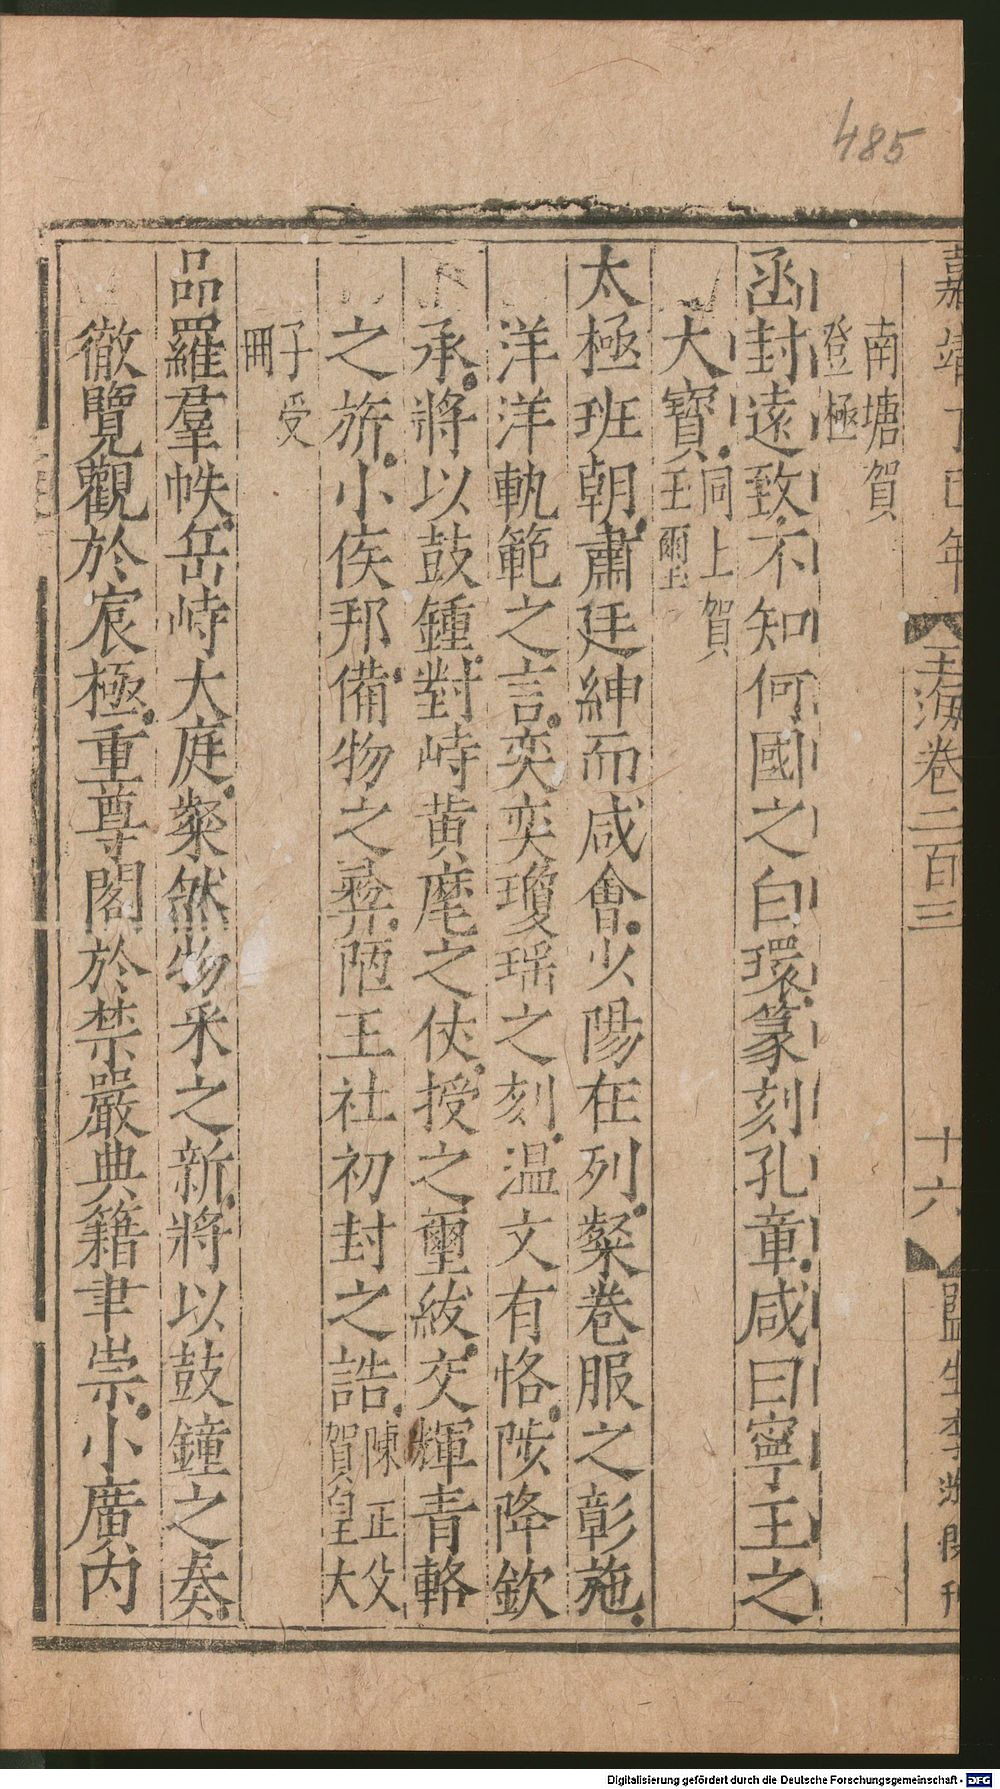 485
嘉靖丁巳年
玉海卷二百三
十六
監生李
刊
南塘賀
登極
函封遠致不知何國之白環篆刻孔章咸曰寧王之
大寶同上賀
玉璽
太極班朝肅廷紳而咸會少陽在列粲卷服之彰施
洋洋軌範之言奕奕瓊瑶之刻温文有恪陟降欽
承將以鼓鍾對峙黄麾之仗授之璽紱交輝青輅
之旂小侯邦備物之彞陋王社初封之誥陳正父
賀皇大
子受
冊
品羅羣帙岳峙大庭粲然物采之新將以鼓鐘之奏
徹覽觀於宸極重尊閣於禁嚴典籍聿崇小廣内
Digitalisierung gefördert durch die Deutsche Forschungsgemeinschaft - DFG